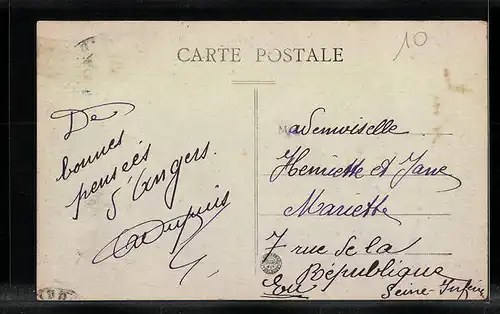 CARTE POSTALE
10
De
bonnes
pensées
d'Angers.
Mademoiselle
Henriette et Jane
Mariette
7 rue de la
République
Eu
Seine-Infér